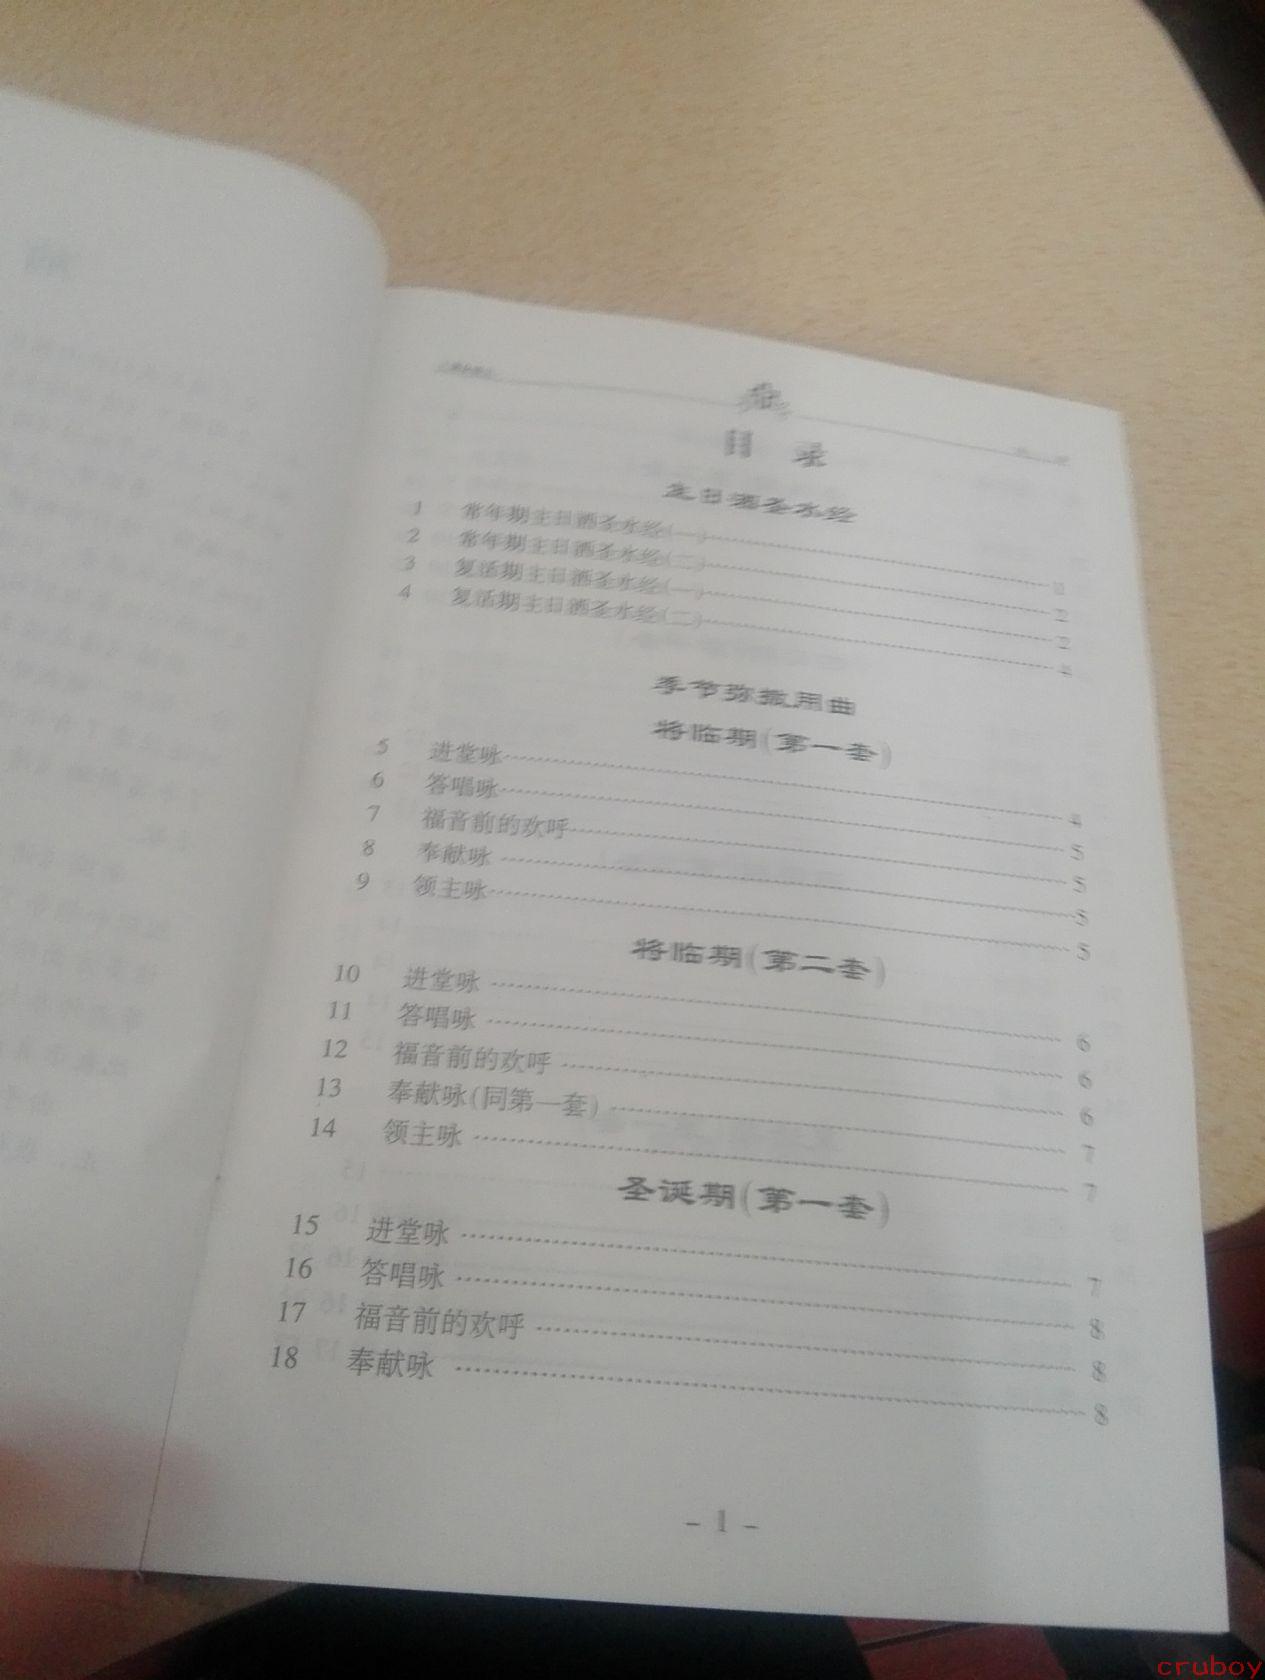 目 录
主日洒圣水经
1 常年期主日洒圣水经(一) 1
2 常年期主日洒圣水经(二) 2
3 复活期主日洒圣水经(一) 2
4 复活期主日洒圣水经(二) 4
季节弥撒用曲
将临期(第一套)
5 进堂咏 4
6 答唱咏 5
7 福音前的欢呼 5
8 奉献咏 5
9 领主咏 5
将临期(第二套)
10 进堂咏 6
11 答唱咏 6
12 福音前的欢呼 6
13 奉献咏(同第一套) 7
14 领主咏 7
圣诞期(第一套)
15 进堂咏 7
16 答唱咏 8
17 福音前的欢呼 8
18 奉献咏 8
- 1 -
cruboy